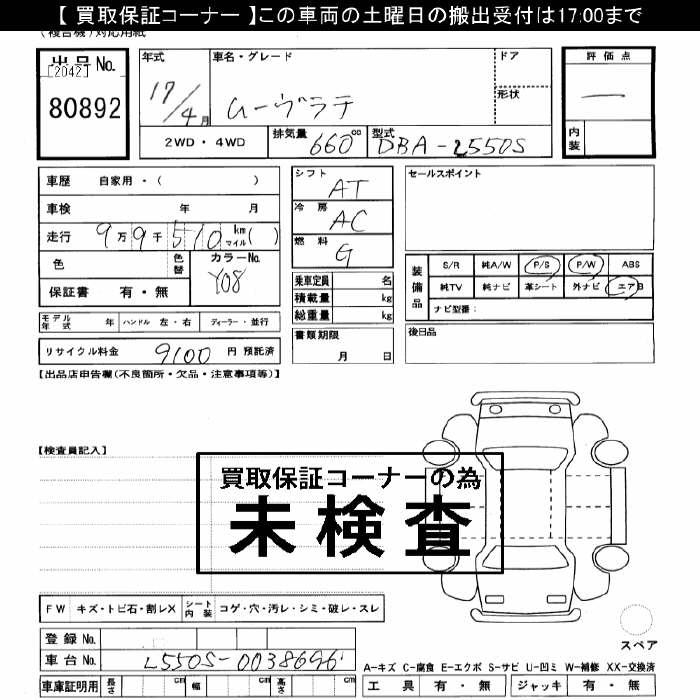 【 買取保証コーナー 】この車両の土曜日の搬出受付は17:00まで
(複合機)対応用紙
出品No.
[2042]
80892
年式
17/4月
車名・グレード
ムーヴラテ
ドア
形状
評価点
—
内装
2WD・4WD
排気量
660cc
型式
DBA-L550S
車歴 自家用・( )
車検 年 月
走行 9万9千510 km マイル( )
色
色替
カラーNo.
Y08
保証書 有・無
モデル年式 年
ハンドル 左・右
ディーラー・並行
リサイクル料金 9100 円 預託済
シフト
AT
冷房
AC
燃料
G
乗車定員 名
積載量 kg
総重量 kg
書類期限
月 日
セールスポイント
装備品
S/R 純A/W P/S P/W ABS
純TV 純ナビ 革シート 外ナビ エアB
ナビ型番:
後日品
【出品店申告欄(不良箇所・欠品・注意事項等)】
【検査員記入】
買取保証コーナーの為
未検査
FW キズ・トビ石・割レX
シート内装 コゲ・穴・汚レ・シミ・破レ・スレ
登録 No.
車台 No. L550S-0038696
車庫証明用 長さ cm 幅 cm 高さ cm
スペア
A-キズ C-腐食 E-エクボ S-サビ U-凹ミ W-補修 XX-交換済
工具 有・無
ジャッキ 有・無